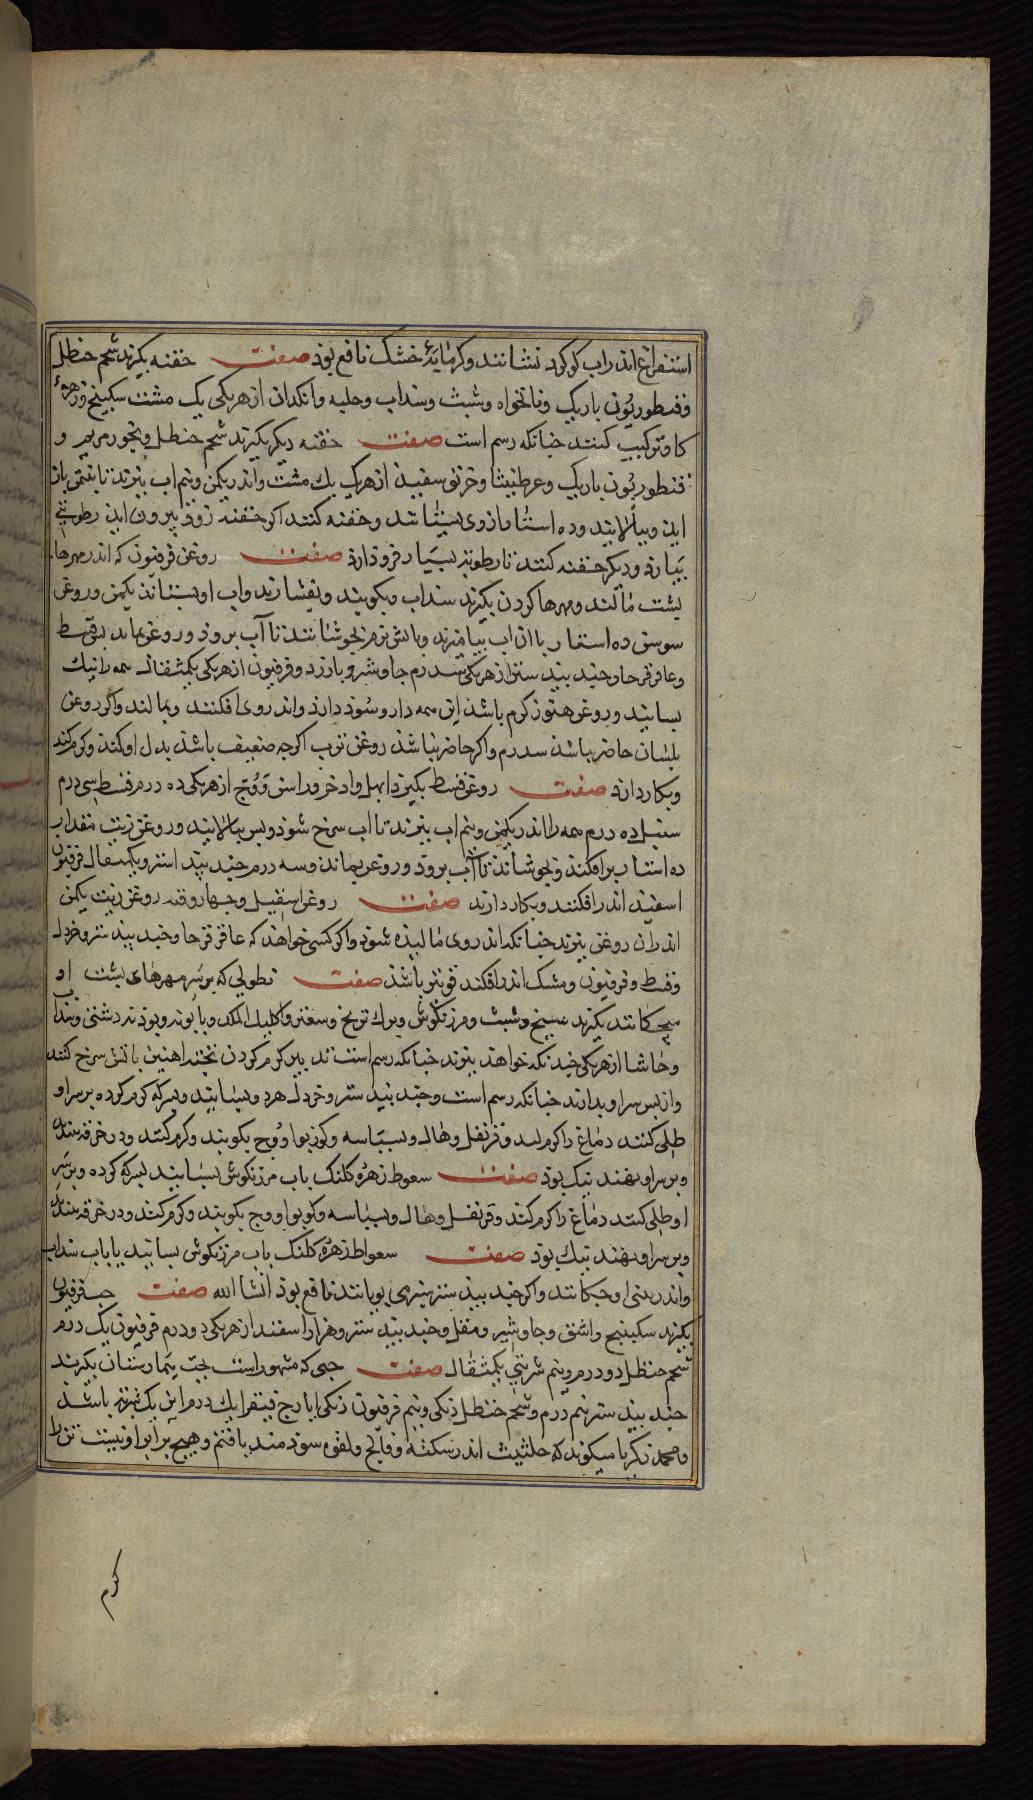 استفراغ اندر اب کوکرد نشانند وکرمابهٔ خشک نافع بوذ صفت حقنه بکیرند شحم حنظل
وقنطوریون باریک ونانخواه وشبث وسداب وحلبه وانکدان از هریکی یک مشت سکبینج وزهرهٔ
کاو ترکیب کنند جنانکه رسم است صفت حقنه دیکر بکیرند شحم حنظل وبخور مریم و
قنطوریون باریک وعرطنیثا وخربق سفیذ از هریک یک مشت واندر یکمن ونیم اب ببزند تا بنیمی باز
اید وببالایند وده استار ازوی بستانند وحقنه کنند اکر حقنه زوذ بیرون ایذ رطوبتی
بیارذ ودیکر حقنه کنند تا رطوبت بسیار فروذ ارذ صفت روغن فرفیون که اندر مهرهای
بشت مالند ومهرها کردن بکیرند سداب وبکوبند وبفشارند واب او بستانند یکمن وروغن
سوسن ده استار با ان اب بیامیزند وباتش نرم بجوشانند تا آب بروذ وروغن بماند بس قسط
وعاقرقرحا وجند بیذ ستر از هریکی سه درم جاوشیر وبارزد وفرفیون از هریکی یکمثقال همه را نیک
بسایند وروغن هنوز کرم باشذ این همه داروسوذه دارذ واندر وی افکنند وبمالند واکر روغن
بلسان حاضر باشذ سه درم واکر حاضر نباشذ روغن ترب اکرجه ضعیف باشذ بدل او کنند وکرم کنند
وبکار دارند صفت روغن قسط بکیرند ابهل واذخر وراسن ووج از هریکی ده درم قسط سی درم
سنبل ده درم همه را اندر یکمن ونیم اب ببزند تا اب سرخ شوذ وبس ببالایند وروغن زیت مقدار
ده استار برافکنند وبجوشانند تا آب بروذ وروغن بماند وسه درم جند بیذ استر ویکمثقال فرفیون
اسفیذ اندر افکنند وبکار دارند صفت روغن اسقیل وجهار وقیه روغن زیت یکمن
اندران روغن ببزند جنانکه اندر وی مالیده شوذ واکر کسی خواهذ که عاقرقرحا وجند بیذ ستر وخردل
وقسط وفرفیون ومشک اندر افکند قویتر باشذ صفت نطولی که بر سر مهرهای بشت او
می چکانند بکیرند شیح وشبث ومرزنکوش وبرک ترنج وسعتر واکلیل الملک وبابونه وبوذنه دشتی وسداب
وحاشا از هریکی جندانکه خواهند ببزند جنانکه رسم است بس کرم کردن تخته اهنین باتش سرخ کنند
واز بس سر او بدارند جنانکه رسم است وجند بیذ ستر وخردل هردو بسایند وبسرکه کرم کرده بر سر او
طلی کنند دماغ را کرم کند وقرنفل وهال وبسباسه وکوزبوا ووج بکوبند وکرم کنند ودر خرقه بندند
وبر سر او نهند نیک بوذ صفت سعوط زهرهٔ کلنک باب مرزنکوش بسایند بسرکه کرده وبر سر
او طلی کنند دماغ را کرم کنند وقرنفل وهال وبسباسه وکوبوا ووج بکوبند وکرم کنند ودر خرقه بندند
وبر سر او نهند نیک بوذ صفت سعواط زهرهٔ کلنک باب مرزنکوش بسایند یا باب سداب
واندر بینی او جکانند واکر جند بیذ ستر ببینی بوبانند نافع بوذ انشا الله صفت حب فرفیون
بکیرند سکبینج واشق وجاوشیر ومقل وجند بیذ ستر وهزار اسفند از هریکی دودرم فرفیون یک درم
شحم حنظل دودرم ونیم شربتی یکمثقال صفت حبی که مشهور است بحب بیمارستان بکیرند
جند بیذ ستر نیم درم وشحم حنظل دنکی ونیم فرفیون دنکی ایارج فیقرا یک درم این یک شربت باشذ
ومحمد زکریا میکوید که حلتیت اندر سکته وفالج ولقوه سوذمند یافتم وهیچ برابر او نیست تن را
کرم